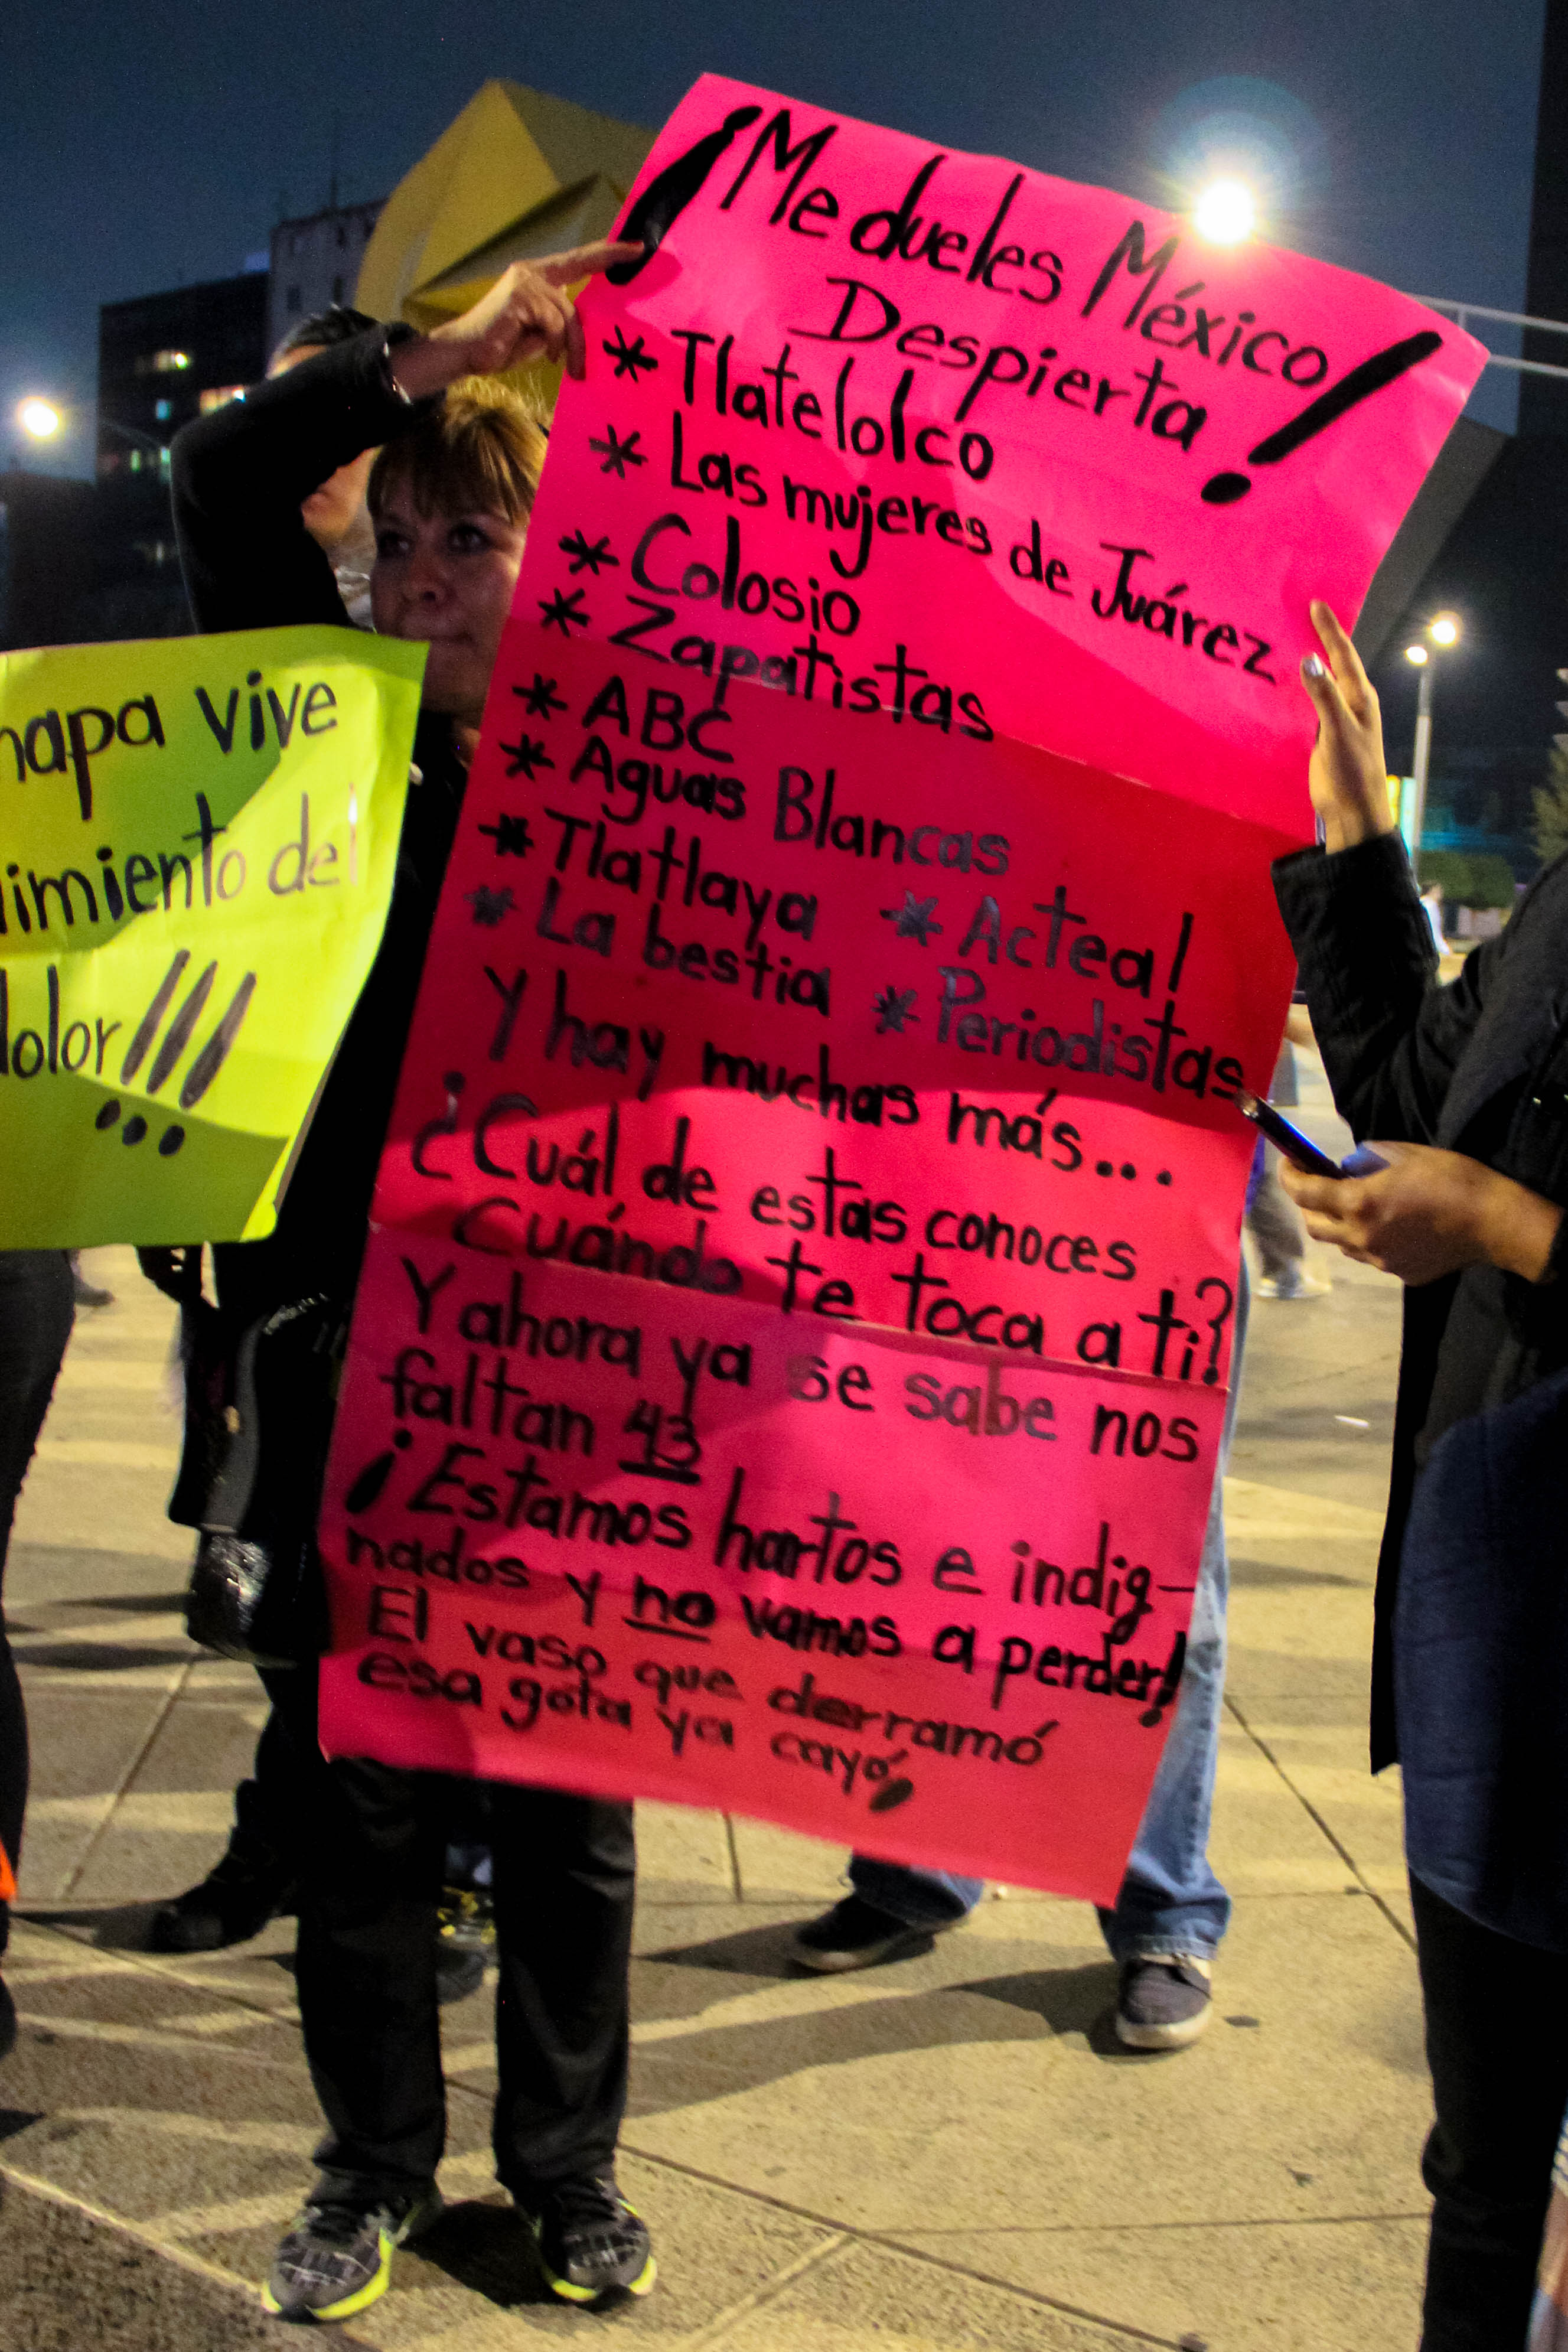 ¡Me dueles México
Despierta!
* Tlatelolco
* Las mujeres de Juárez
* Colosio
* Zapatistas
* ABC
* Aguas Blancas
* Tlatlaya * Acteal
* La bestia * Periodistas
Y hay muchas más...
¿Cuál de estas conoces
Cuándo te toca a ti?
Y ahora ya se sabe nos
faltan 43
¡Estamos hartos e indig-
nados y no vamos a perder!
El vaso que derramó
esa gota ya cayó,
napa vive
imiento del
dolor!!!